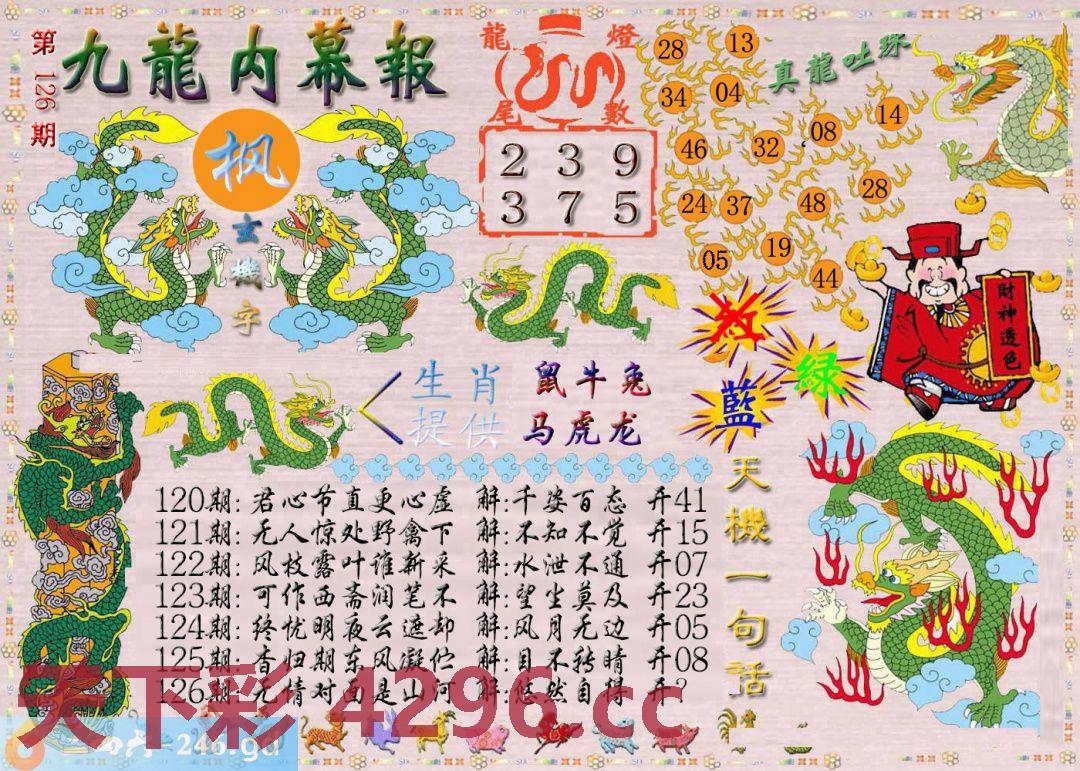 第126期
九龍内幕報
枫
玄機字
龍燈
尾數
2 3 9
3 7 5
真龍吐珠
28 13
34 04
46 32 08 14
24 37 48 28
05 19 44
财神透色
红
綠
藍
生肖提供
鼠牛兔
马虎龙
天機一句話
120期: 君心节直更心虚 解:千姿百态 开41
121期: 无人惊处野禽下 解:不知不觉 开15
122期: 风枝露叶谁新采 解:水泄不通 开07
123期: 可作西斋润笔不 解:望尘莫及 开23
124期: 终忧明夜云遮却 解:风月无边 开05
125期: 香归期东风凝伫 解:目不转睛 开08
126期: 无情对面是山河 解:悠然自得 开?
天下彩 4296.cc
=246.gd